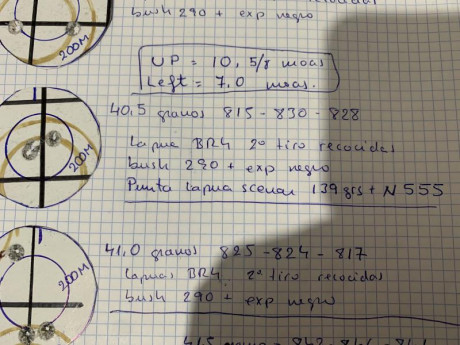 bush 290 + exp negro
UP = 10, 5/8 moas
Left = 7,0 moas.
200M
40,5 granos 815 - 830 - 828
Lapua BR4 2º tiro recocidas
bush 290 + exp negro
Punta lapua scenar 139 grs + N555
200M
41,0 granos 825 - 824 - 817
Lapuas BR4. 2ª tiro recocidas
bush 290 + exp negro
200M